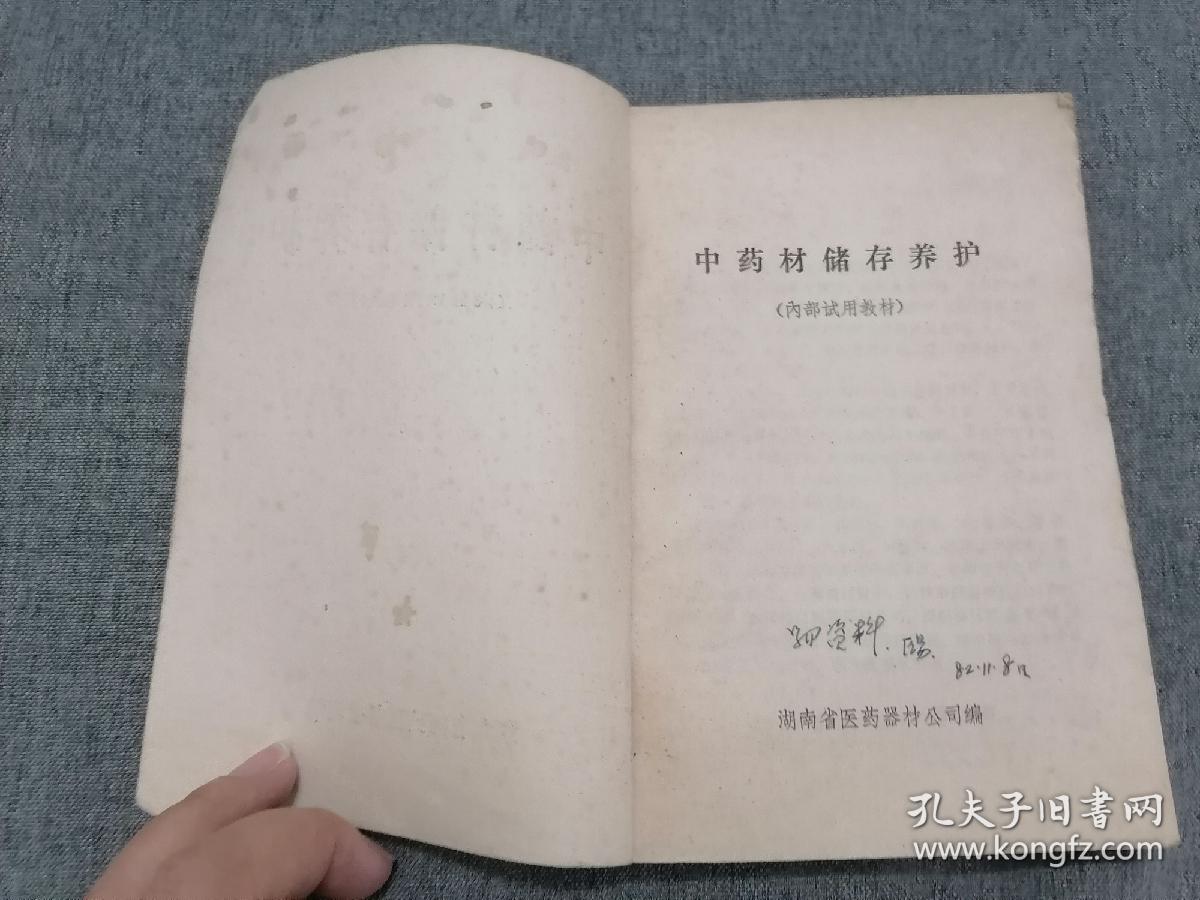 中药材储存养护
（内部试用教材）
资料
82.11.8日
湖南省医药器材公司编
孔夫子旧书网
www.kongfz.com